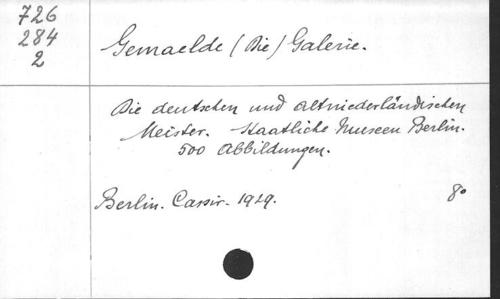 726
284
2
Gemaelde (Die) Galerie.
Die deutschen und altniederländischen
Meister. Staatliche Museen Berlin.
500 Abbildungen.
Berlin. Cassir. 1929. 8°